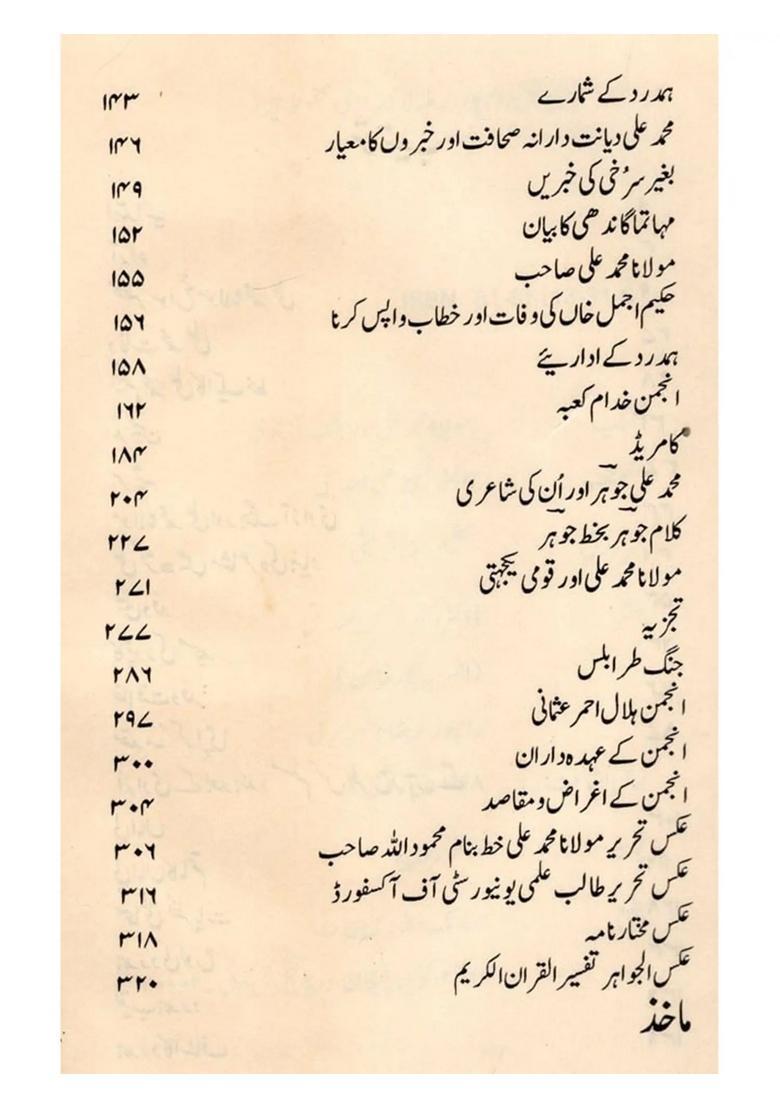 ہمدرد کے شمارے ۱۴۳
محمد علی دیانت دارانہ صحافت اور خبروں کا معیار ۱۴۶
بغیر سرُخی کی خبریں ۱۴۹
مہاتما گاندھی کا بیان ۱۵۲
مولانا محمد علی صاحب ۱۵۵
حکیم اجمل خاں کی وفات اور خطاب واپس کرنا ۱۵۶
ہمدرد کے اداریئے ۱۵۸
انجمن خدام کعبہ ۱۶۲
کامریڈ ۱۸۴
محمد علی جوہر اور اُن کی شاعری ۲۰۴
کلام جوہر بخط جوہر ۲۲۷
مولانا محمد علی اور قومی یکجہتی ۲۷۱
تجزیہ ۲۷۷
جنگ طرابلس ۲۸۶
انجمن ہلال احمر عثمانی ۲۹۷
انجمن کے عہدہ داران ۳۰۰
انجمن کے اغراض و مقاصد ۳۰۴
عکس تحریر مولانا محمد علی خط بنام محمود اللہ صاحب ۳۰۶
عکس تحریر طالب علمی یونیورسٹی آف آکسفورڈ ۳۱۶
عکس مختار نامہ ۳۱۸
عکس الجواہر تفسیر القران الکریم ۳۲۰
ماخذ